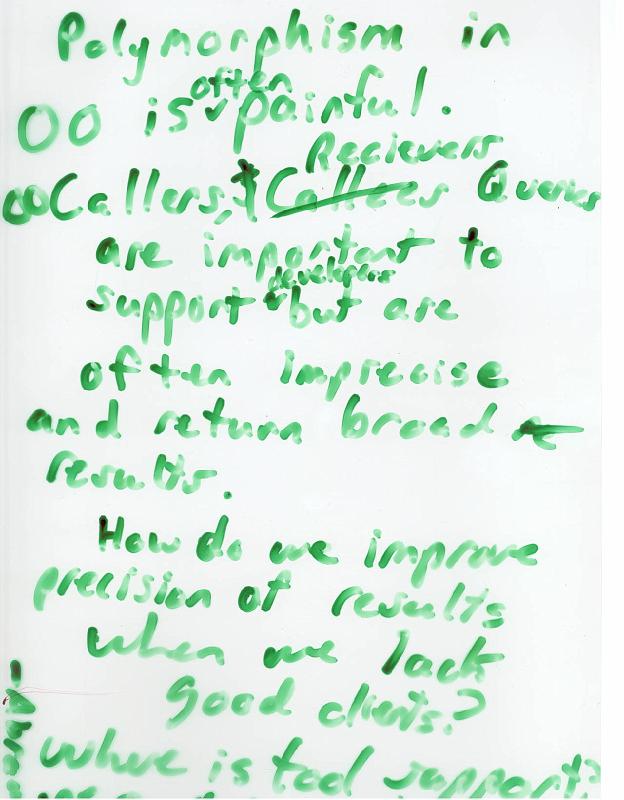 Polymorphism in
often
OO is painful.
Recievers
OO Callers, & Callees Queries
are important to
developers
support but are
often imprecise
and return broad
results.
How do we improve
precision of results
when we lack
good clients?
where is tool support?